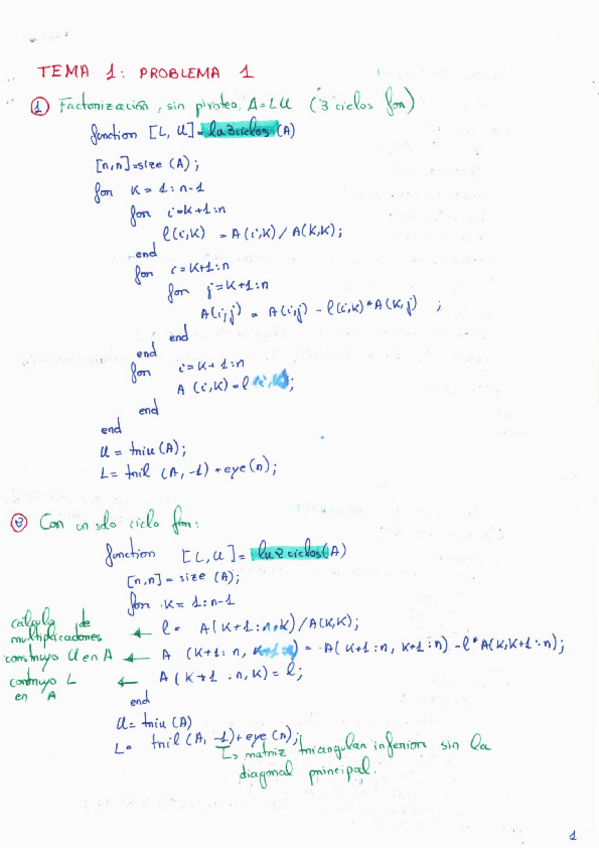 TEMA 1: PROBLEMA 1
① Factorización, sin pivoteo, A=LU (3 ciclos for)
function [L, U]=lu3ciclos(A)
[n,n]=size (A);
for K = 1:n-1
for i=K+1:n
l(i,K) = A(i,K) / A(K,K);
end
for i=K+1:n
for j=K+1:n
A(i,j) = A(i,j) - l(i,K)*A(K,j) ;
end
end
for i=K+1:n
A (i,K)=l (i,K);
end
end
U = triu (A);
L= tril (A, -1)+eye(n);
② Con un solo ciclo for:
function [L,U]= lu2ciclos(A)
[n,n] = size (A);
for K = 1:n-1
cálculo de multiplicadores ← l = A(K+1:n,K)/A(K,K);
construyo U en A ← A (K+1:n, K+1:n) = A(K+1:n, K+1:n) - l*A(K,K+1:n);
construyo L en A ← A(K+1:n,K) = l;
end
U= triu (A)
L= tril (A, -1)+eye(n);
matriz triangular inferior sin la
diagonal principal.
1